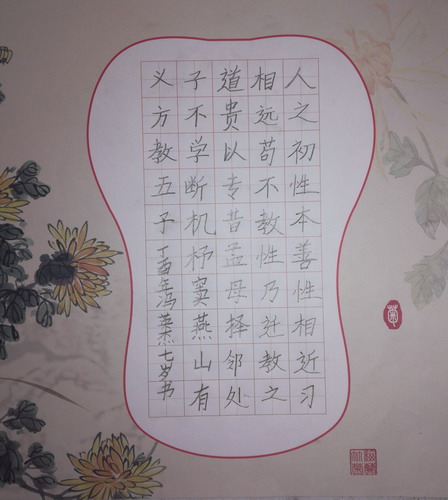 人之初性本善性相近习
相远苟不教性乃迁教之
道贵以专昔孟母择邻处
子不学断机杼窦燕山有
义方教五子丁酉年冯杰七岁书